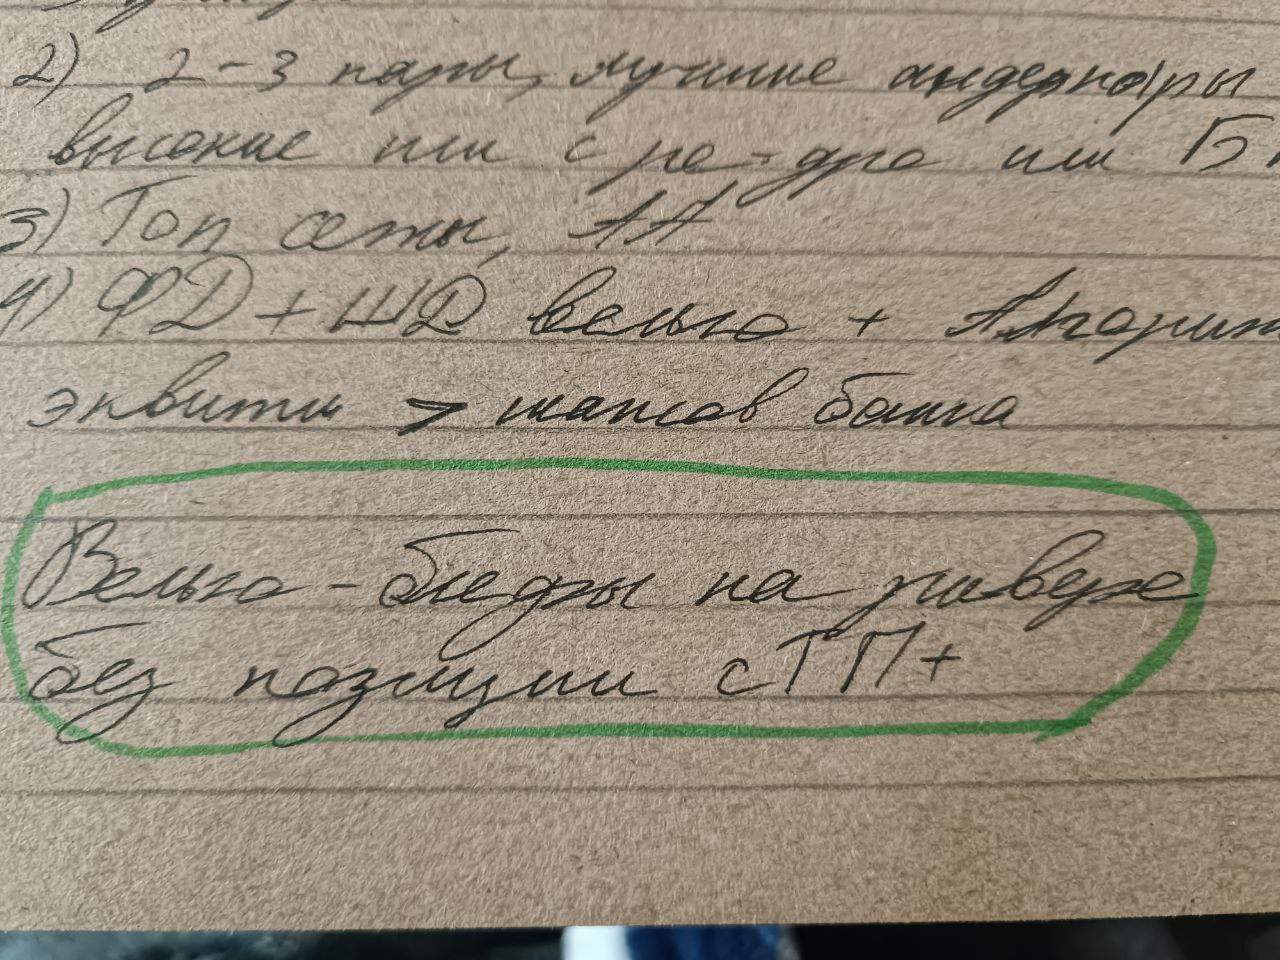 2) 2-3 пары, лучшие андерпары
высокие или с ре-дро или Б
3) Топ сеты, АА
4) ФД + ШД велью + Алгорит
эквити > шансов банка
Велью - блефы на ривере
без позиции с ТП+